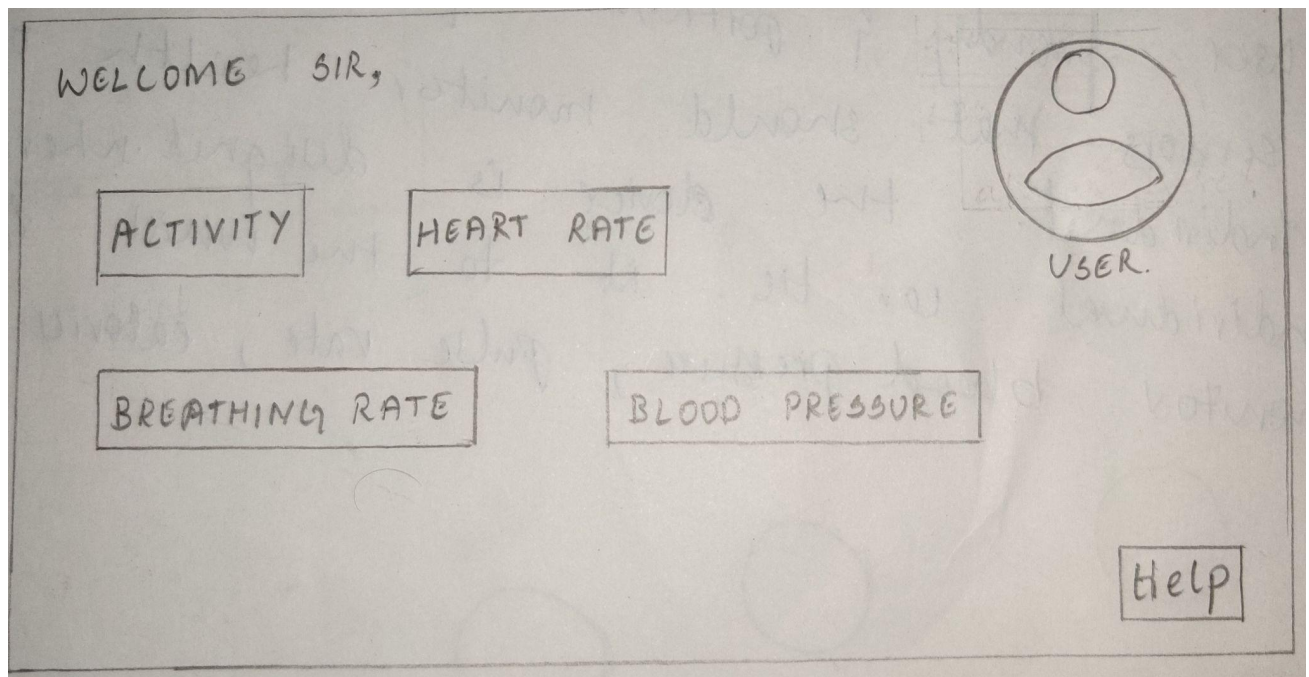 WELCOME SIR,
ACTIVITY
HEART RATE
USER.
BREATHING RATE
BLOOD PRESSURE
Help